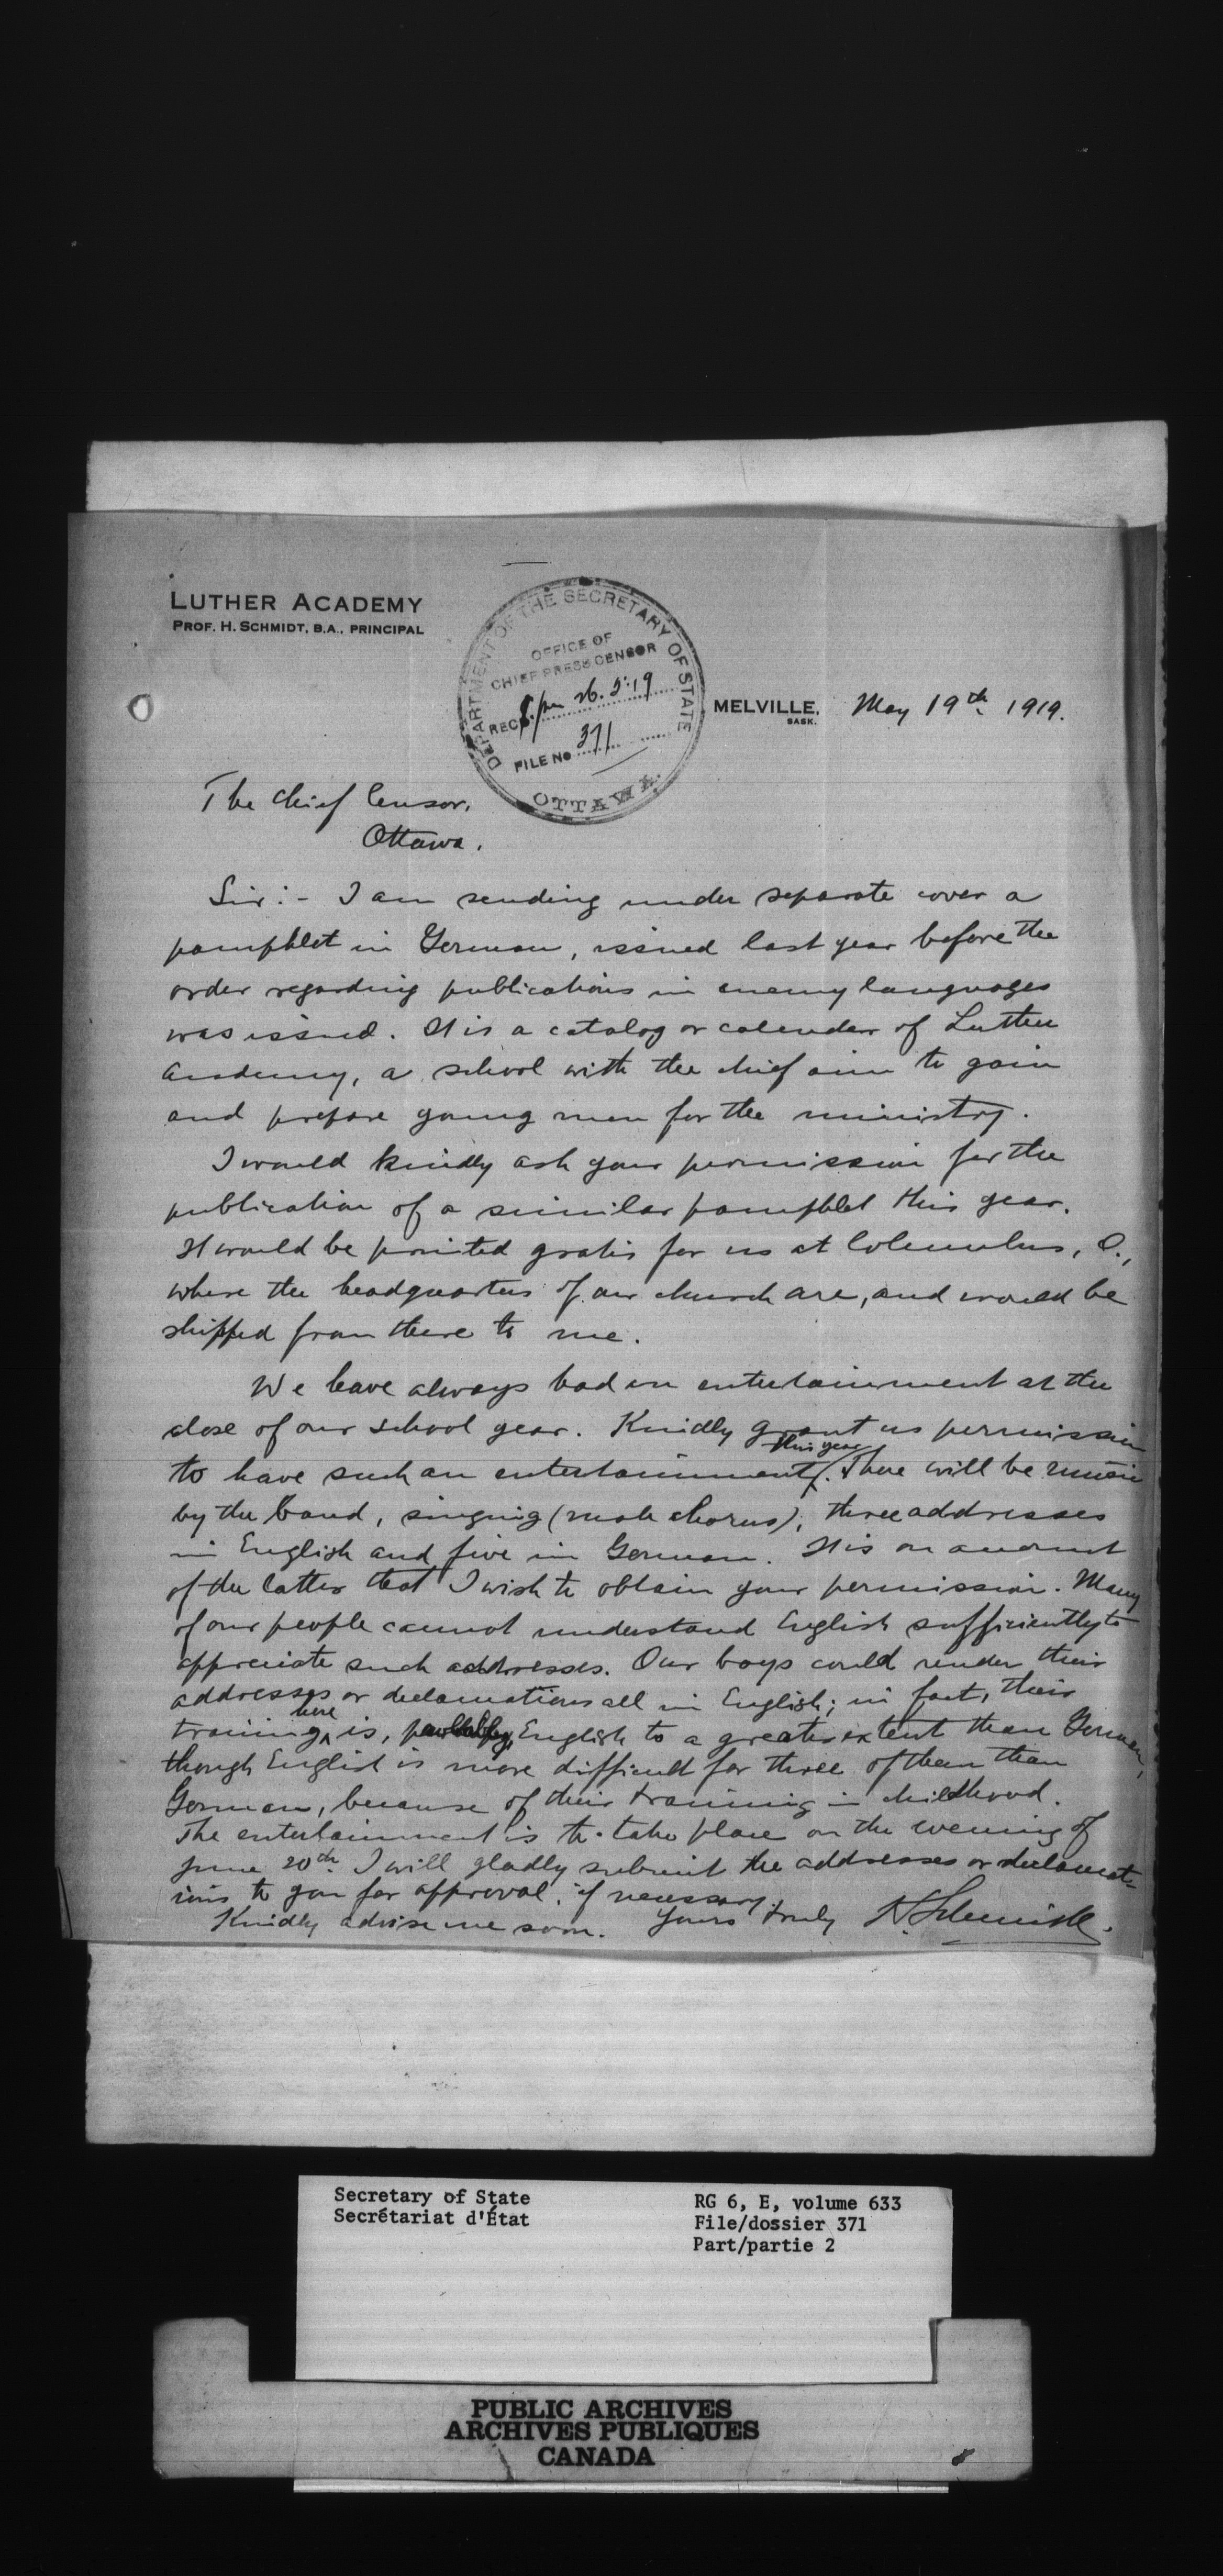 LUTHER ACADEMY
PROF. H. SCHMIDT, B.A., PRINCIPAL
DEPARTMENT OF THE SECRETARY OF STATE
OFFICE OF
CHIEF PRESS CENSOR
REC'D. 26.5.19
FILE No 371
OTTAWA.
MELVILLE, SASK. May 19th 1919.
The Chief Censor,
Ottawa.
Sir:- I am sending under separate cover a
pamphlet in German, issued last year before the
order regarding publications in enemy languages
was issued. It is a catalog or calendar of Luther
Academy, a school with the chief aim to gain
and prepare young men for the ministry.
I would kindly ask your permission for the
publication of a similar pamphlet this year.
It would be printed gratis for us at Columbus, O.,
where the headquarters of our church are, and would be
shipped from there to me.
We have always had an entertainment at the
close of our school year. Kindly grant us permission
to have such an entertainment this year. There will be music
by the band, singing (male chorus), three addresses
in English and five in German. It is on account
of the latter that I wish to obtain your permission. Many
of our people cannot understand English sufficiently to
appreciate such addresses. Our boys could render their
addresses or declamations all in English; in fact, their
training here is, English to a greater extent than German,
though English is more difficult for three of them than
German, because of their training in childhood.
The entertainment is to take place on the evening of
June 20th. I will gladly submit the addresses or declamat-
ions to you for approval, if necessary.
Kindly advise me soon. Yours truly H. Schmidt.
Secretary of State
Secrétariat d'État
RG 6, E, volume 633
File/dossier 371
Part/partie 2
PUBLIC ARCHIVES
ARCHIVES PUBLIQUES
CANADA